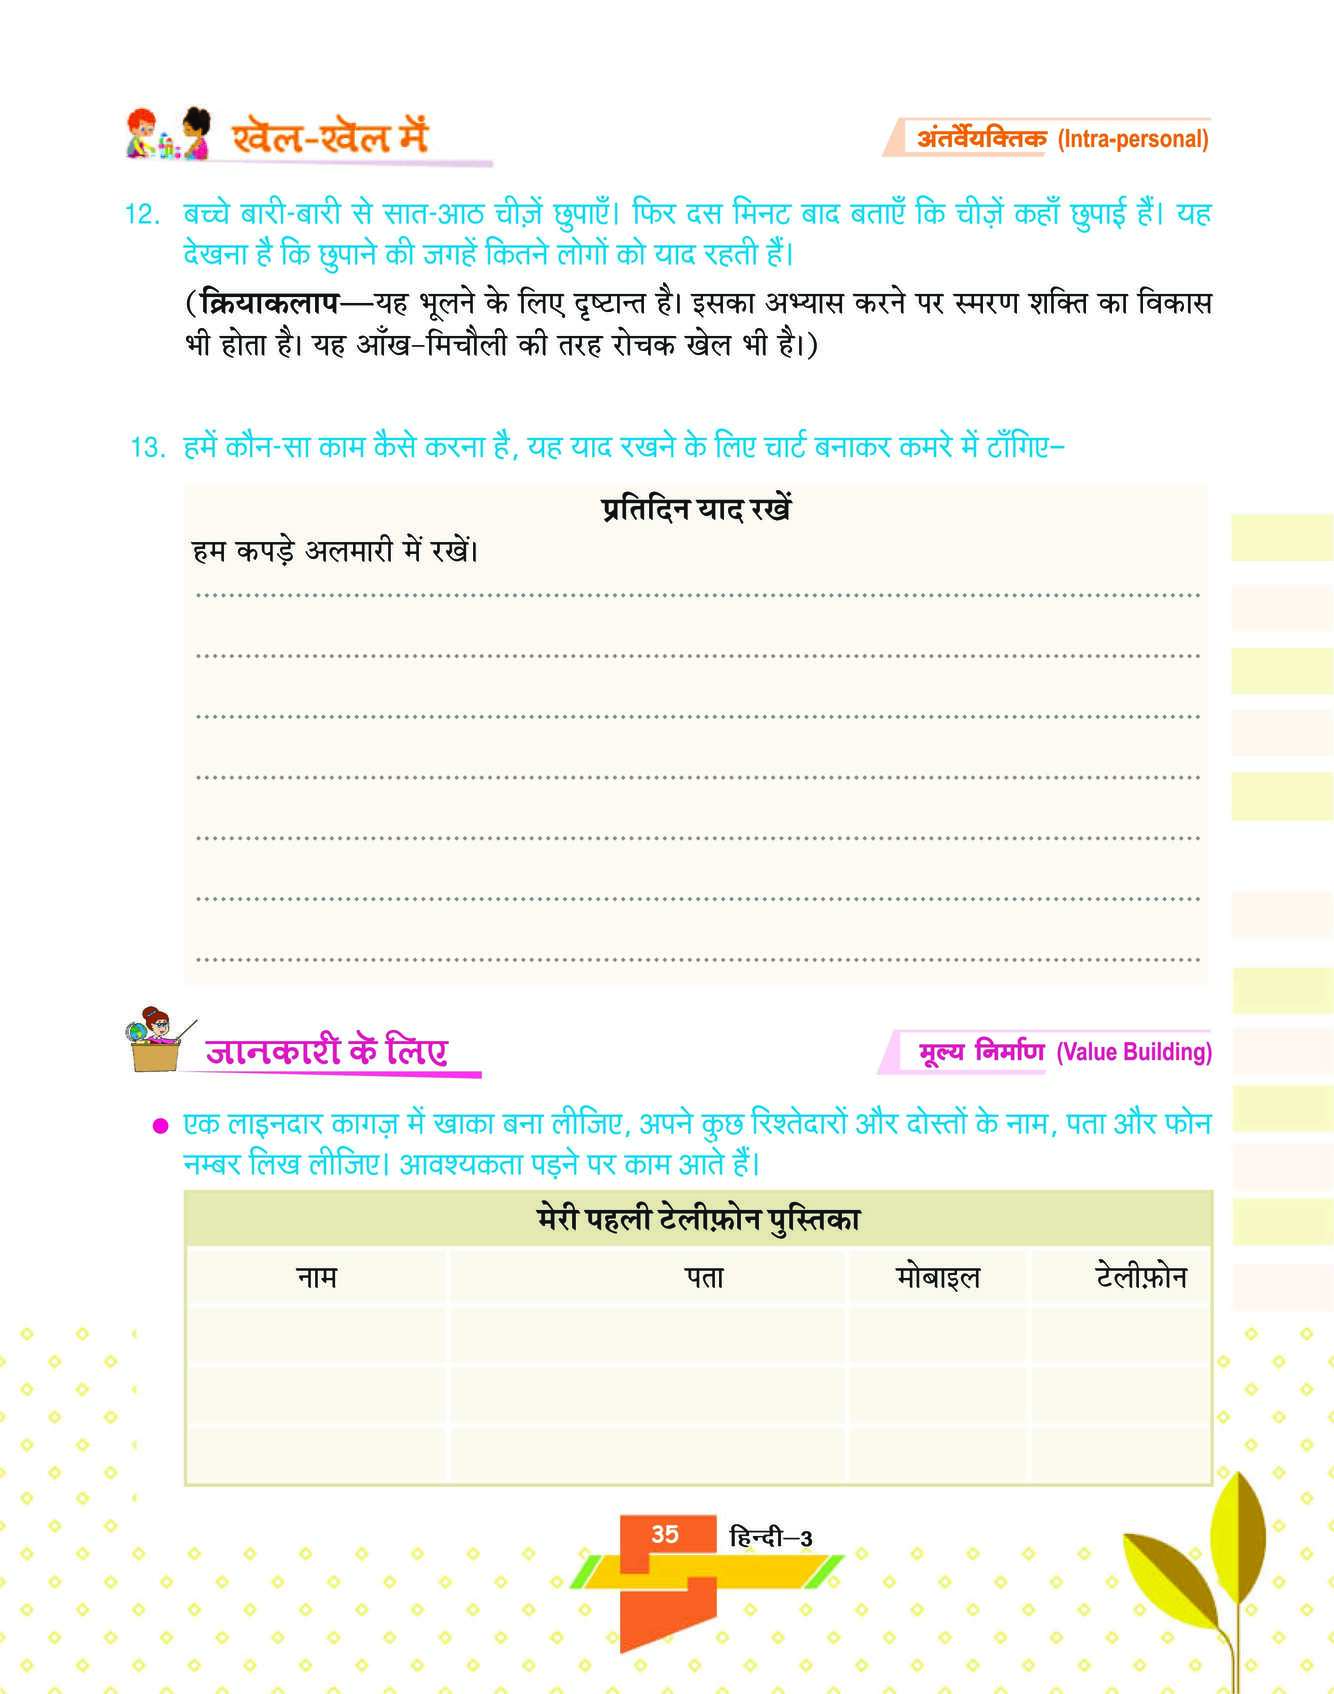 खेल-खेल में
अंतर्वैयक्तिक (Intra-personal)
12. बच्चे बारी-बारी से सात-आठ चीज़ें छुपाएँ। फिर दस मिनट बाद बताएँ कि चीज़ें कहाँ छुपाई हैं। यह
देखना है कि छुपाने की जगहें कितने लोगों को याद रहती हैं।
(क्रियाकलाप—यह भूलने के लिए दृष्टान्त है। इसका अभ्यास करने पर स्मरण शक्ति का विकास
भी होता है। यह आँख-मिचौली की तरह रोचक खेल भी है।)
13. हमें कौन-सा काम कैसे करना है, यह याद रखने के लिए चार्ट बनाकर कमरे में टाँगिए–
प्रतिदिन याद रखें
हम कपड़े अलमारी में रखें।
जानकारी के लिए
मूल्य निर्माण (Value Building)
● एक लाइनदार कागज़ में खाका बना लीजिए, अपने कुछ रिश्तेदारों और दोस्तों के नाम, पता और फोन
नम्बर लिख लीजिए। आवश्यकता पड़ने पर काम आते हैं।
मेरी पहली टेलीफ़ोन पुस्तिका
नाम पता मोबाइल टेलीफ़ोन
35 हिन्दी–3